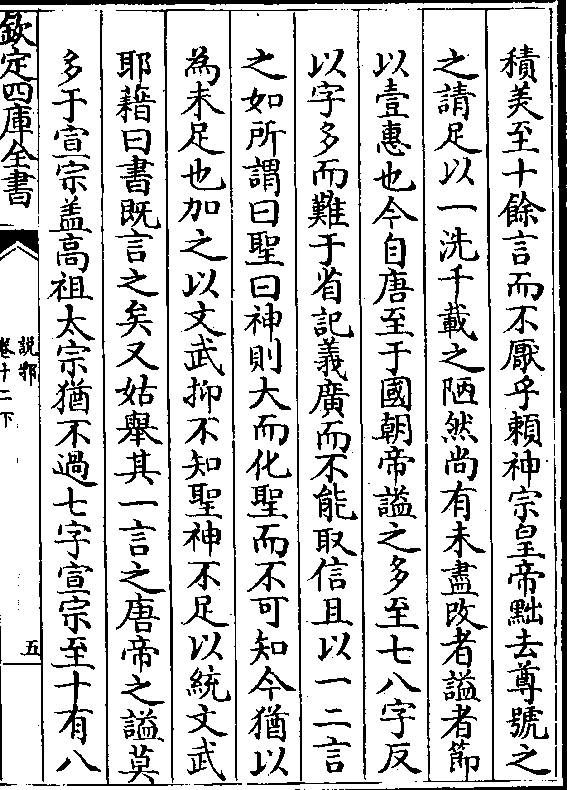 積美至十餘言而不厭乎頼神宗皇帝黜去尊號之
之請足以一洗千載之陋然尚有未盡改者謚者節
以壹惠也今自唐至于國朝帝謚之多至七八字反
以字多而難于省記義廣而不能取信且以一二言
之如所謂曰聖曰神則大而化聖而不可知今猶以
為未足也加之以文武抑不知聖神不足以統文武
耶藉曰書既言之矣又姑舉其一言之唐帝之謚莫
多于宣宗盖高祖太宗猶不過七字宣宗至十有八
欽定四庫全書
說郛
卷十二下
五